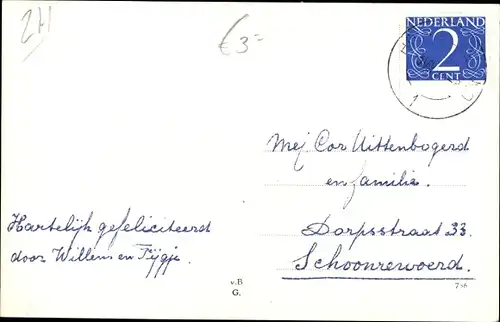 2H
€ 3=
NEDERLAND
2
CENT
Mej Cor Uittenbogerd
en familie.
Dorpsstraat 33.
Schoonrewoerd.
Hartelijk gefeliciteerd
door Willem en Fijgje.
v.B
G.